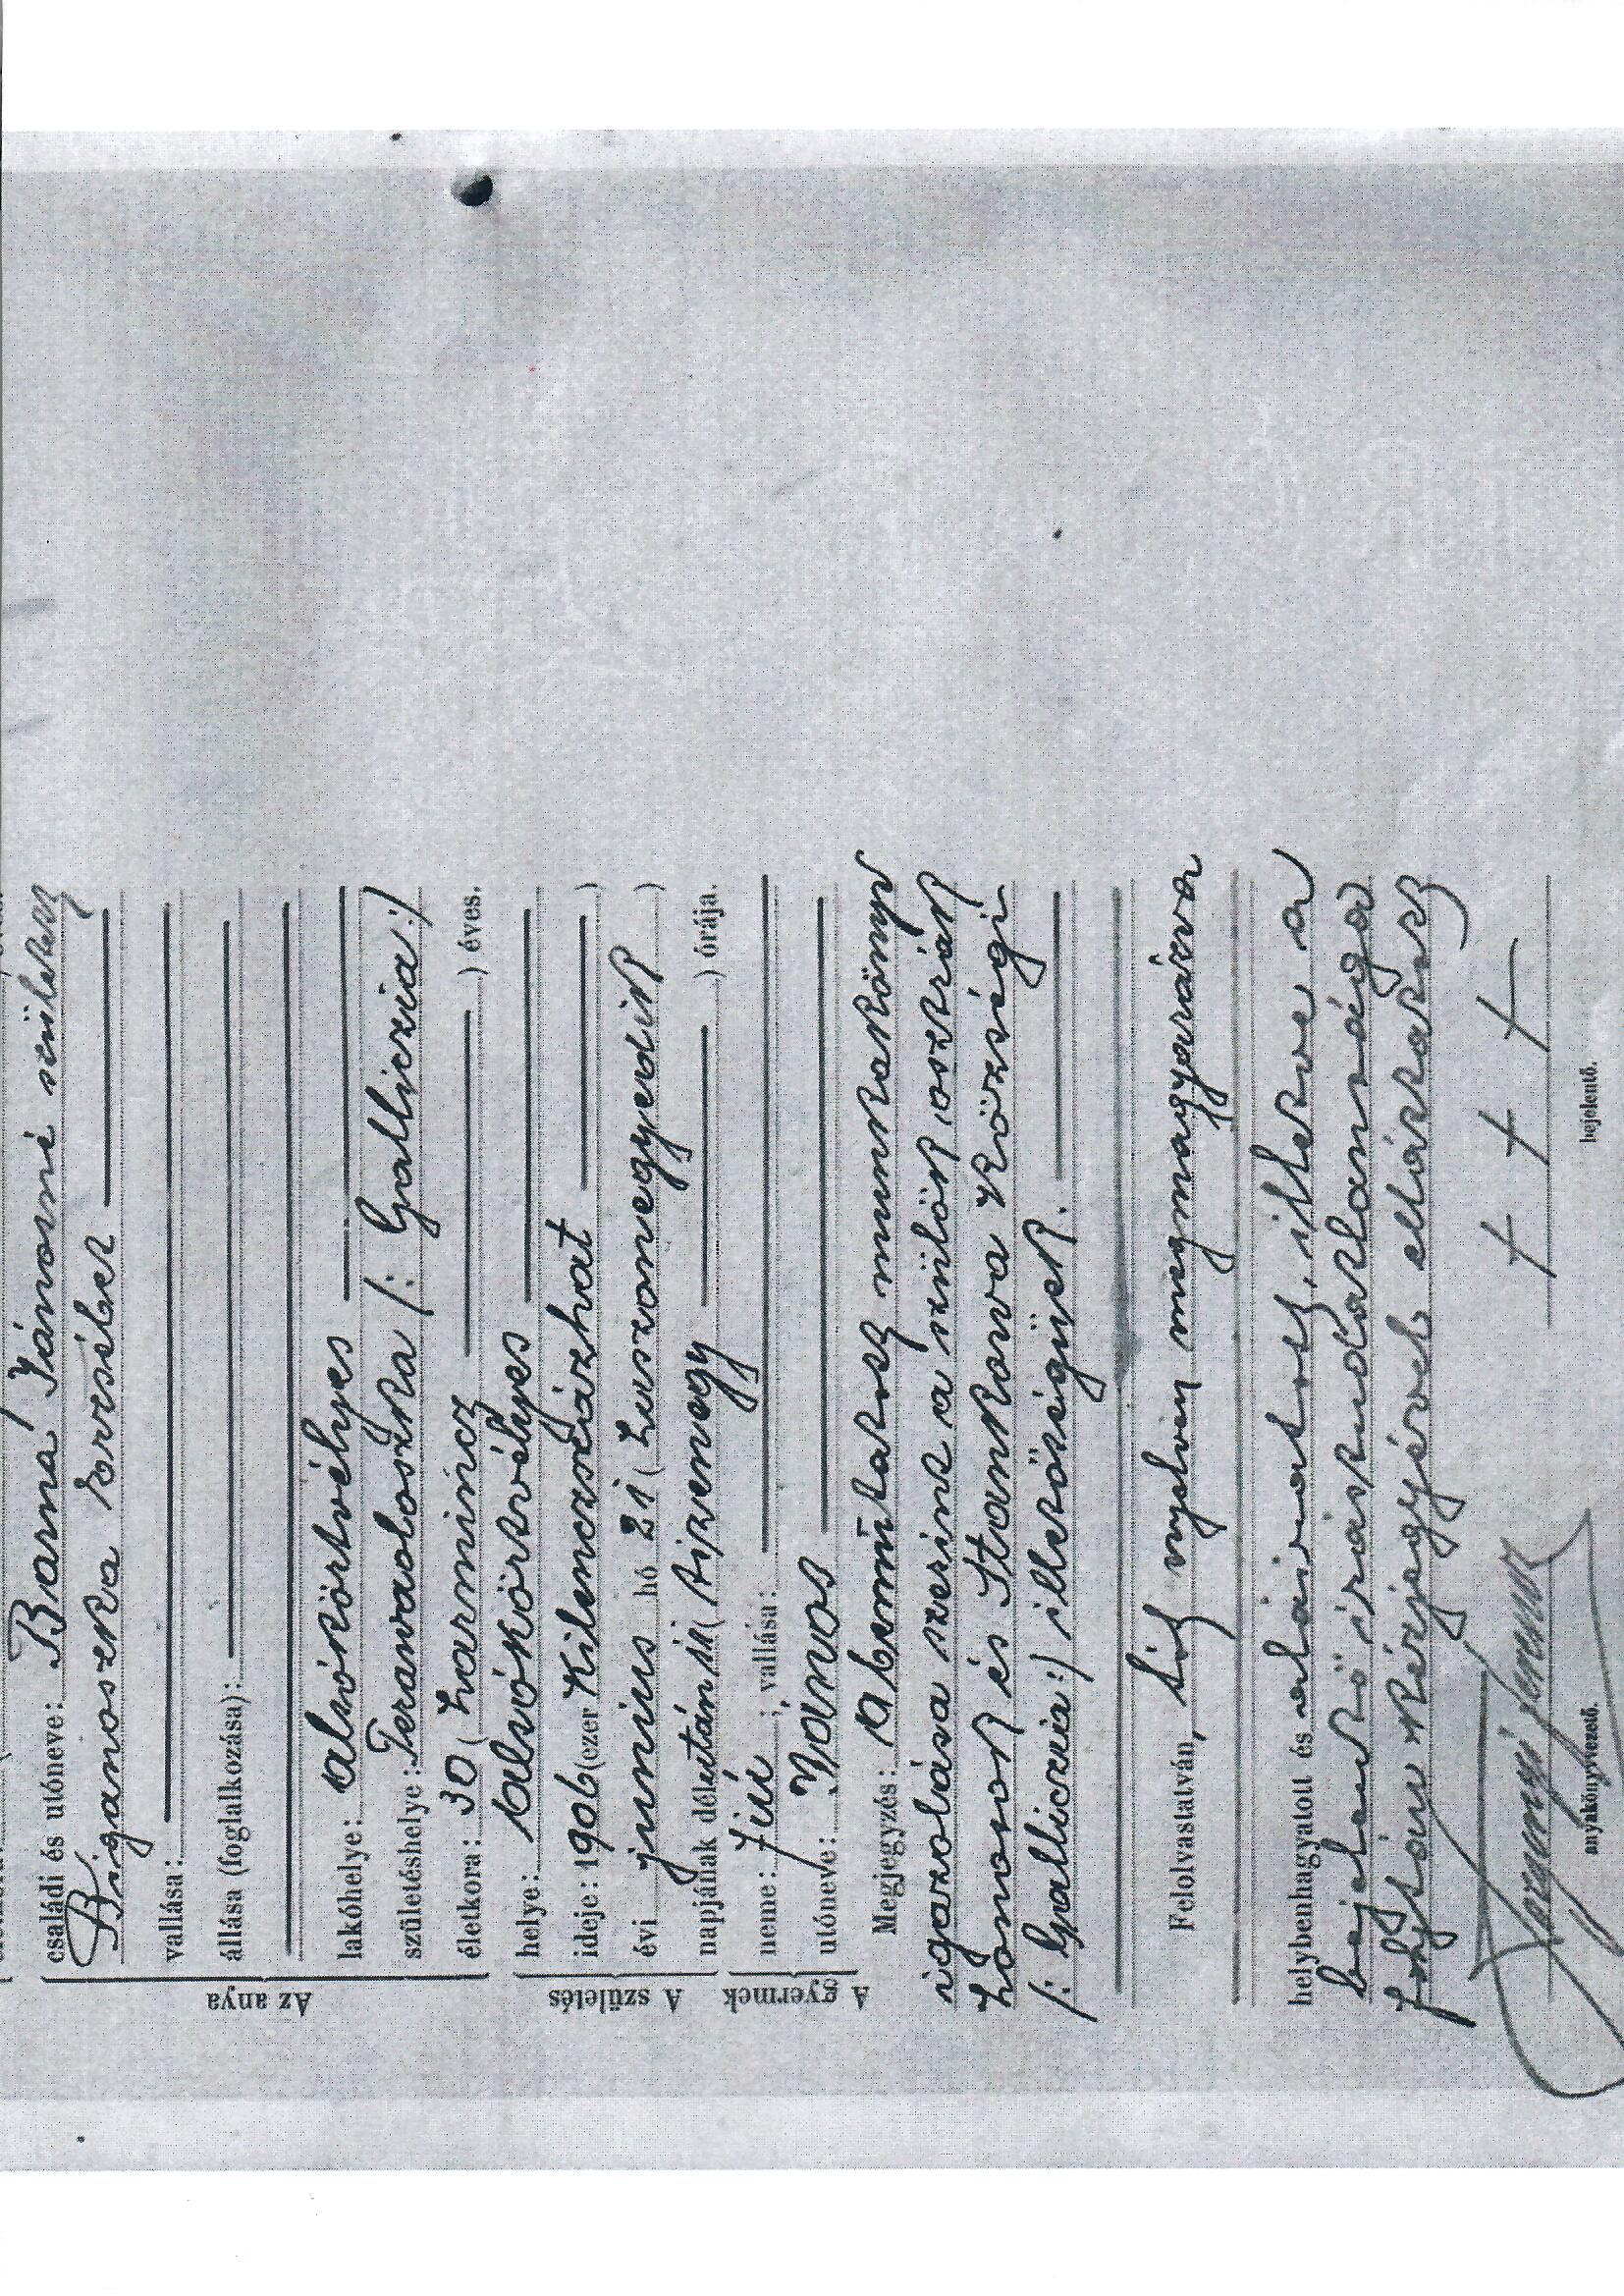 családi és utóneve: Barna Jánosné született
Biganoszka Erzsébet
vallása:
állása (foglalkozása):
lakóhelye: alsókörtvélyes
születéshelye: Teranaoloszka /: Galliczia :/
életkora: 30 ( harmincz ) éves.
helye: Alsókörtvélyes
ideje: 1906 (ezer kilenczszázhat )
évi junius hó 21 ( huszonegyedik )
napjának délutáni ( tizenegy ) órája.
neme: fiú ; vallása:
utóneve: János
Az anya
A születés
A gyermek
Megjegyzés: A bemutatott munkakönyv
igazolása szerint a szülők osztrák
honosok és Stankowa községi
/: Galliczia :/ illetőségüek.
Felolvastatván, tót nyelven megmagyarázva
helybenhagyatott és aláiratott, illetve a
bejelentő irástudatlansága
folytán kézjegyével ellátatott
+ + +
anyakönyvvezető.
bejelentő.